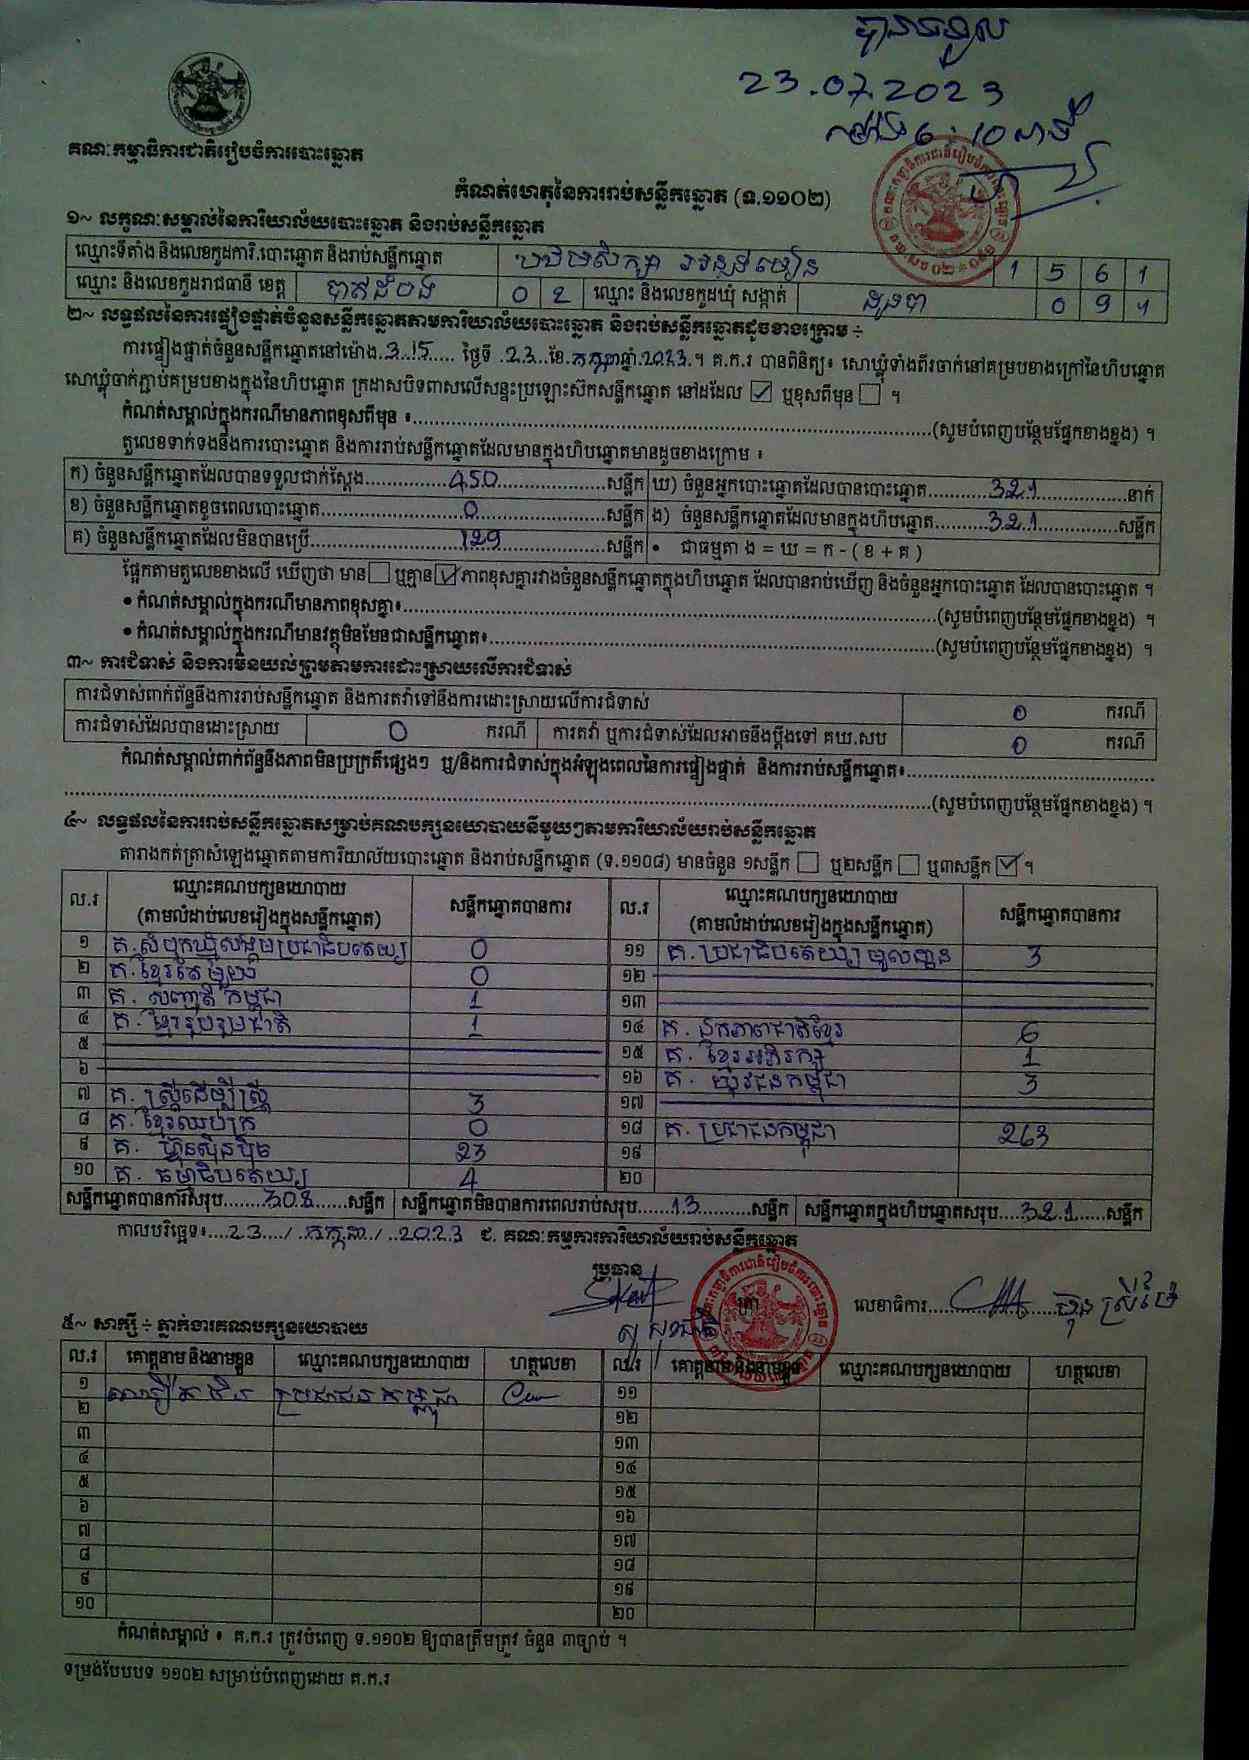 បានទទួល
23.07.2023
ម៉ោង 6:10 នាទី
គណៈកម្មាធិការជាតិរៀបចំការបោះឆ្នោត
កំណត់ហេតុនៃការរាប់សន្លឹកឆ្នោត (ទ.១១០២)
១~ លក្ខណៈសម្គាល់នៃការិយាល័យបោះឆ្នោត និងរាប់សន្លឹកឆ្នោត
ឈ្មោះទីតាំង និងលេខកូដការិ.បោះឆ្នោត និងរាប់សន្លឹកឆ្នោត បឋមសិក្សា 1 5 6 1
ឈ្មោះ និងលេខកូដរាជធានី ខេត្ត បាត់ដំបង 0 2 ឈ្មោះ និងលេខកូដឃុំ សង្កាត់ ដូនបា 0 9 1
២~ លទ្ធផលនៃការផ្ទៀងផ្ទាត់ចំនួនសន្លឹកឆ្នោតតាមការិយាល័យបោះឆ្នោត និងរាប់សន្លឹកឆ្នោតដូចខាងក្រោម ÷
ការផ្ទៀងផ្ទាត់ចំនួនសន្លឹកឆ្នោតនៅម៉ោង.3:15..... ថ្ងៃទី .23...ខែ.កក្កដាឆ្នាំ.2023.។ គ.ក.រ បានពិនិត្យ៖ សោឃ្លុំទាំងពីរចាក់នៅគម្របខាងក្រៅនៃហិបឆ្នោត
សោឃ្លុំចាក់ភ្ជាប់គម្របខាងក្នុងនៃហិបឆ្នោត ក្រដាសបិទពាសលើសន្ទះប្រឡោះស៊កសន្លឹកឆ្នោត នៅដដែល ☑ ឬខុសពីមុន ☐ ។
កំណត់សម្គាល់ក្នុងករណីមានភាពខុសពីមុន ៖..........(សូមបំពេញបន្ថែមផ្នែកខាងខ្នង) ។
តួលេខទាក់ទងនឹងការបោះឆ្នោត និងការរាប់សន្លឹកឆ្នោតដែលមានក្នុងហិបឆ្នោតមានដូចខាងក្រោម ៖
ក) ចំនួនសន្លឹកឆ្នោតដែលបានទទួលជាក់ស្តែង..........450..........សន្លឹក ឃ) ចំនួនអ្នកបោះឆ្នោតដែលបានបោះឆ្នោត..........321..........នាក់
ខ) ចំនួនសន្លឹកឆ្នោតខូចពេលបោះឆ្នោត..........0..........សន្លឹក ង) ចំនួនសន្លឹកឆ្នោតដែលមានក្នុងហិបឆ្នោត..........321..........សន្លឹក
គ) ចំនួនសន្លឹកឆ្នោតដែលមិនបានប្រើ..........129..........សន្លឹក • ជាធម្មតា ង = ឃ = ក - ( ខ + គ )
ផ្អែកតាមតួលេខខាងលើ ឃើញថា មាន ☐ ឬគ្មាន ☑ ភាពខុសគ្នារវាងចំនួនសន្លឹកឆ្នោតក្នុងហិបឆ្នោត ដែលបានរាប់ឃើញ និងចំនួនអ្នកបោះឆ្នោត ដែលបានបោះឆ្នោត ។
• កំណត់សម្គាល់ក្នុងករណីមានភាពខុសគ្នា៖..........(សូមបំពេញបន្ថែមផ្នែកខាងខ្នង) ។
• កំណត់សម្គាល់ក្នុងករណីមានវត្ថុមិនមែនជាសន្លឹកឆ្នោត៖..........(សូមបំពេញបន្ថែមផ្នែកខាងខ្នង) ។
៣~ ការជំទាស់ និងការមិនយល់ព្រមតាមការដោះស្រាយលើការជំទាស់
ការជំទាស់ពាក់ព័ន្ធនឹងការរាប់សន្លឹកឆ្នោត និងការតវ៉ាទៅនឹងការដោះស្រាយលើការជំទាស់ 0 ករណី
ការជំទាស់ដែលបានដោះស្រាយ 0 ករណី ការតវ៉ា ឬការជំទាស់ដែលអាចនឹងប្តឹងទៅ គឃ.សប 0 ករណី
កំណត់សម្គាល់ពាក់ព័ន្ធនឹងភាពមិនប្រក្រតីផ្សេងៗ ឬ/និងការជំទាស់ក្នុងអំឡុងពេលនៃការផ្ទៀងផ្ទាត់ និងការរាប់សន្លឹកឆ្នោត៖..........
..........(សូមបំពេញបន្ថែមផ្នែកខាងខ្នង) ។
៤~ លទ្ធផលនៃការរាប់សន្លឹកឆ្នោតសម្រាប់គណបក្សនយោបាយនីមួយៗតាមការិយាល័យរាប់សន្លឹកឆ្នោត
តារាងកត់ត្រាសំឡេងឆ្នោតតាមការិយាល័យបោះឆ្នោត និងរាប់សន្លឹកឆ្នោត (ទ.១១០៨) មានចំនួន ១សន្លឹក ☐ ឬ២សន្លឹក ☐ ឬ៣សន្លឹក ☑ ។
ល.រ ឈ្មោះគណបក្សនយោបាយ (តាមលំដាប់លេខរៀងក្នុងសន្លឹកឆ្នោត) សន្លឹកឆ្នោតបានការ ល.រ ឈ្មោះគណបក្សនយោបាយ (តាមលំដាប់លេខរៀងក្នុងសន្លឹកឆ្នោត) សន្លឹកឆ្នោតបានការ
១ គ.សំបុកឃ្មុំសង្គមប្រជាធិបតេយ្យ 0 ១១ គ. ប្រជាធិបតេយ្យមូលដ្ឋាន 3
២ គ. ខ្មែរតែមួយ 0 ១២
៣ គ. សញ្ជាតិកម្ពុជា 1 ១៣
៤ គ. ខ្មែររួបរួមជាតិ 1 ១៤ គ. ឯកភាពជាតិខ្មែរ 6
៥ ១៥ គ. ខ្មែរអភិរក្ស 1
៦ ១៦ គ. យុវជនកម្ពុជា 3
៧ គ. ស្ត្រីដើម្បីស្ត្រី 3 ១៧
៨ គ. ខ្មែរឈប់ក្រ 0 ១៨ គ. ប្រជាជនកម្ពុជា 263
៩ គ. ហ៊្វុនស៊ិនប៉ិច 23 ១៩
១០ គ. ធម្មាធិបតេយ្យ 4 ២០
សន្លឹកឆ្នោតបានការសរុប.......308.......សន្លឹក សន្លឹកឆ្នោតមិនបានការពេលរាប់សរុប......13.........សន្លឹក សន្លឹកឆ្នោតក្នុងហិបឆ្នោតសរុប....321......សន្លឹក
កាលបរិច្ឆេទ៖....23..../ .កក្កដា. / ..2023 ជ. គណៈកម្មការការិយាល័យរាប់សន្លឹកឆ្នោត
ប្រធាន
ត្រា
លេខាធិការ....................
៥~ សាក្សី ÷ ភ្នាក់ងារគណបក្សនយោបាយ
ល.រ គោត្តនាម និងនាមខ្លួន ឈ្មោះគណបក្សនយោបាយ ហត្ថលេខា ល.រ គោត្តនាម និងនាមខ្លួន ឈ្មោះគណបក្សនយោបាយ ហត្ថលេខា
១ ប្រជាជនកម្ពុជា ១១
២ ១២
៣ ១៣
៤ ១៤
៥ ១៥
៦ ១៦
៧ ១៧
៨ ១៨
៩ ១៩
១០ ២០
កំណត់សម្គាល់ ៖ គ.ក.រ ត្រូវបំពេញ ទ.១១០២ ឱ្យបានត្រឹមត្រូវ ចំនួន ៣ច្បាប់ ។
ទម្រង់បែបបទ ១១០២ សម្រាប់បំពេញដោយ គ.ក.រ